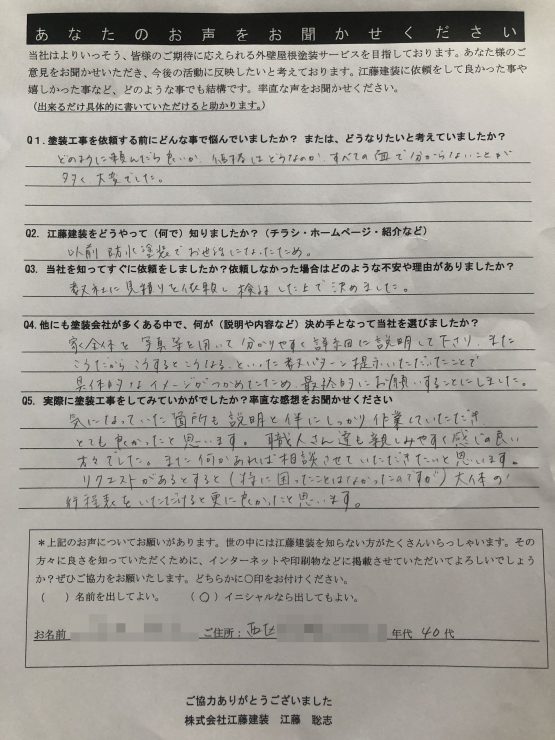 あなたのお声をお聞かせください
当社はよりいっそう、皆様のご期待に応えられる外壁屋根塗装サービスを目指しております。あなた様のご
意見をお聞かせいただき、今後の活動に反映したいと考えております。江藤建装に依頼をして良かった事や
嬉しかった事など、どのような事でも結構です。率直な声をお聞かせください。
(出来るだけ具体的に書いていただけると助かります。)
Q1.塗装工事を依頼する前にどんな事で悩んでいましたか? または、どうなりたいと考えていましたか?
どのように頼んだら良いか、価格はどうなのか、すべての面で分からないことが
多く、大変でした。
Q2. 江藤建装をどうやって(何で)知りましたか?(チラシ・ホームページ・紹介など)
以前 防水塗装でお世話になったため。
Q3. 当社を知ってすぐに依頼をしましたか?依頼しなかった場合はどのような不安や理由がありましたか?
数社に見積りを依頼し 検討した上で決めました。
Q4.他にも塗装会社が多くある中で、何が(説明や内容など)決め手となって当社を選びましたか?
家全体を 写真等を用いて 分かりやすく 詳細に説明して下さり、また
こうだから こうすると こうなる、といった 数パターン 提示いただいたことで
具体的なイメージがつかめたため、最終的に お願いすることにしました。
Q5. 実際に塗装工事をしてみていかがでしたか?率直な感想をお聞かせください
気になっていた箇所も 説明と伴にしっかり 作業していただき
とても良かったと思います。 職人さん達も親しみやすく感じの良い
方々でした。また何かあれば相談させていただきたいと思います。
リクエストがあるとすると(特に困ったことはなかったのですが)大体の
行程表をいただけると更に良かったと思います。
＊上記のお声についてお願いがあります。世の中には江藤建装を知らない方がたくさんいらっしゃいます。その
方々に良さを知っていただくために、インターネットや印刷物などに掲載させていただいてよろしいでしょう
か?ぜひご協力をお願いします。どちらかに○印をお付けください。
( )名前を出してよい。 (○)イニシャルなら出してもよい。
お名前 ご住所: 西区 年代 40代
ご協力ありがとうございました
株式会社江藤建装 江藤 聡志